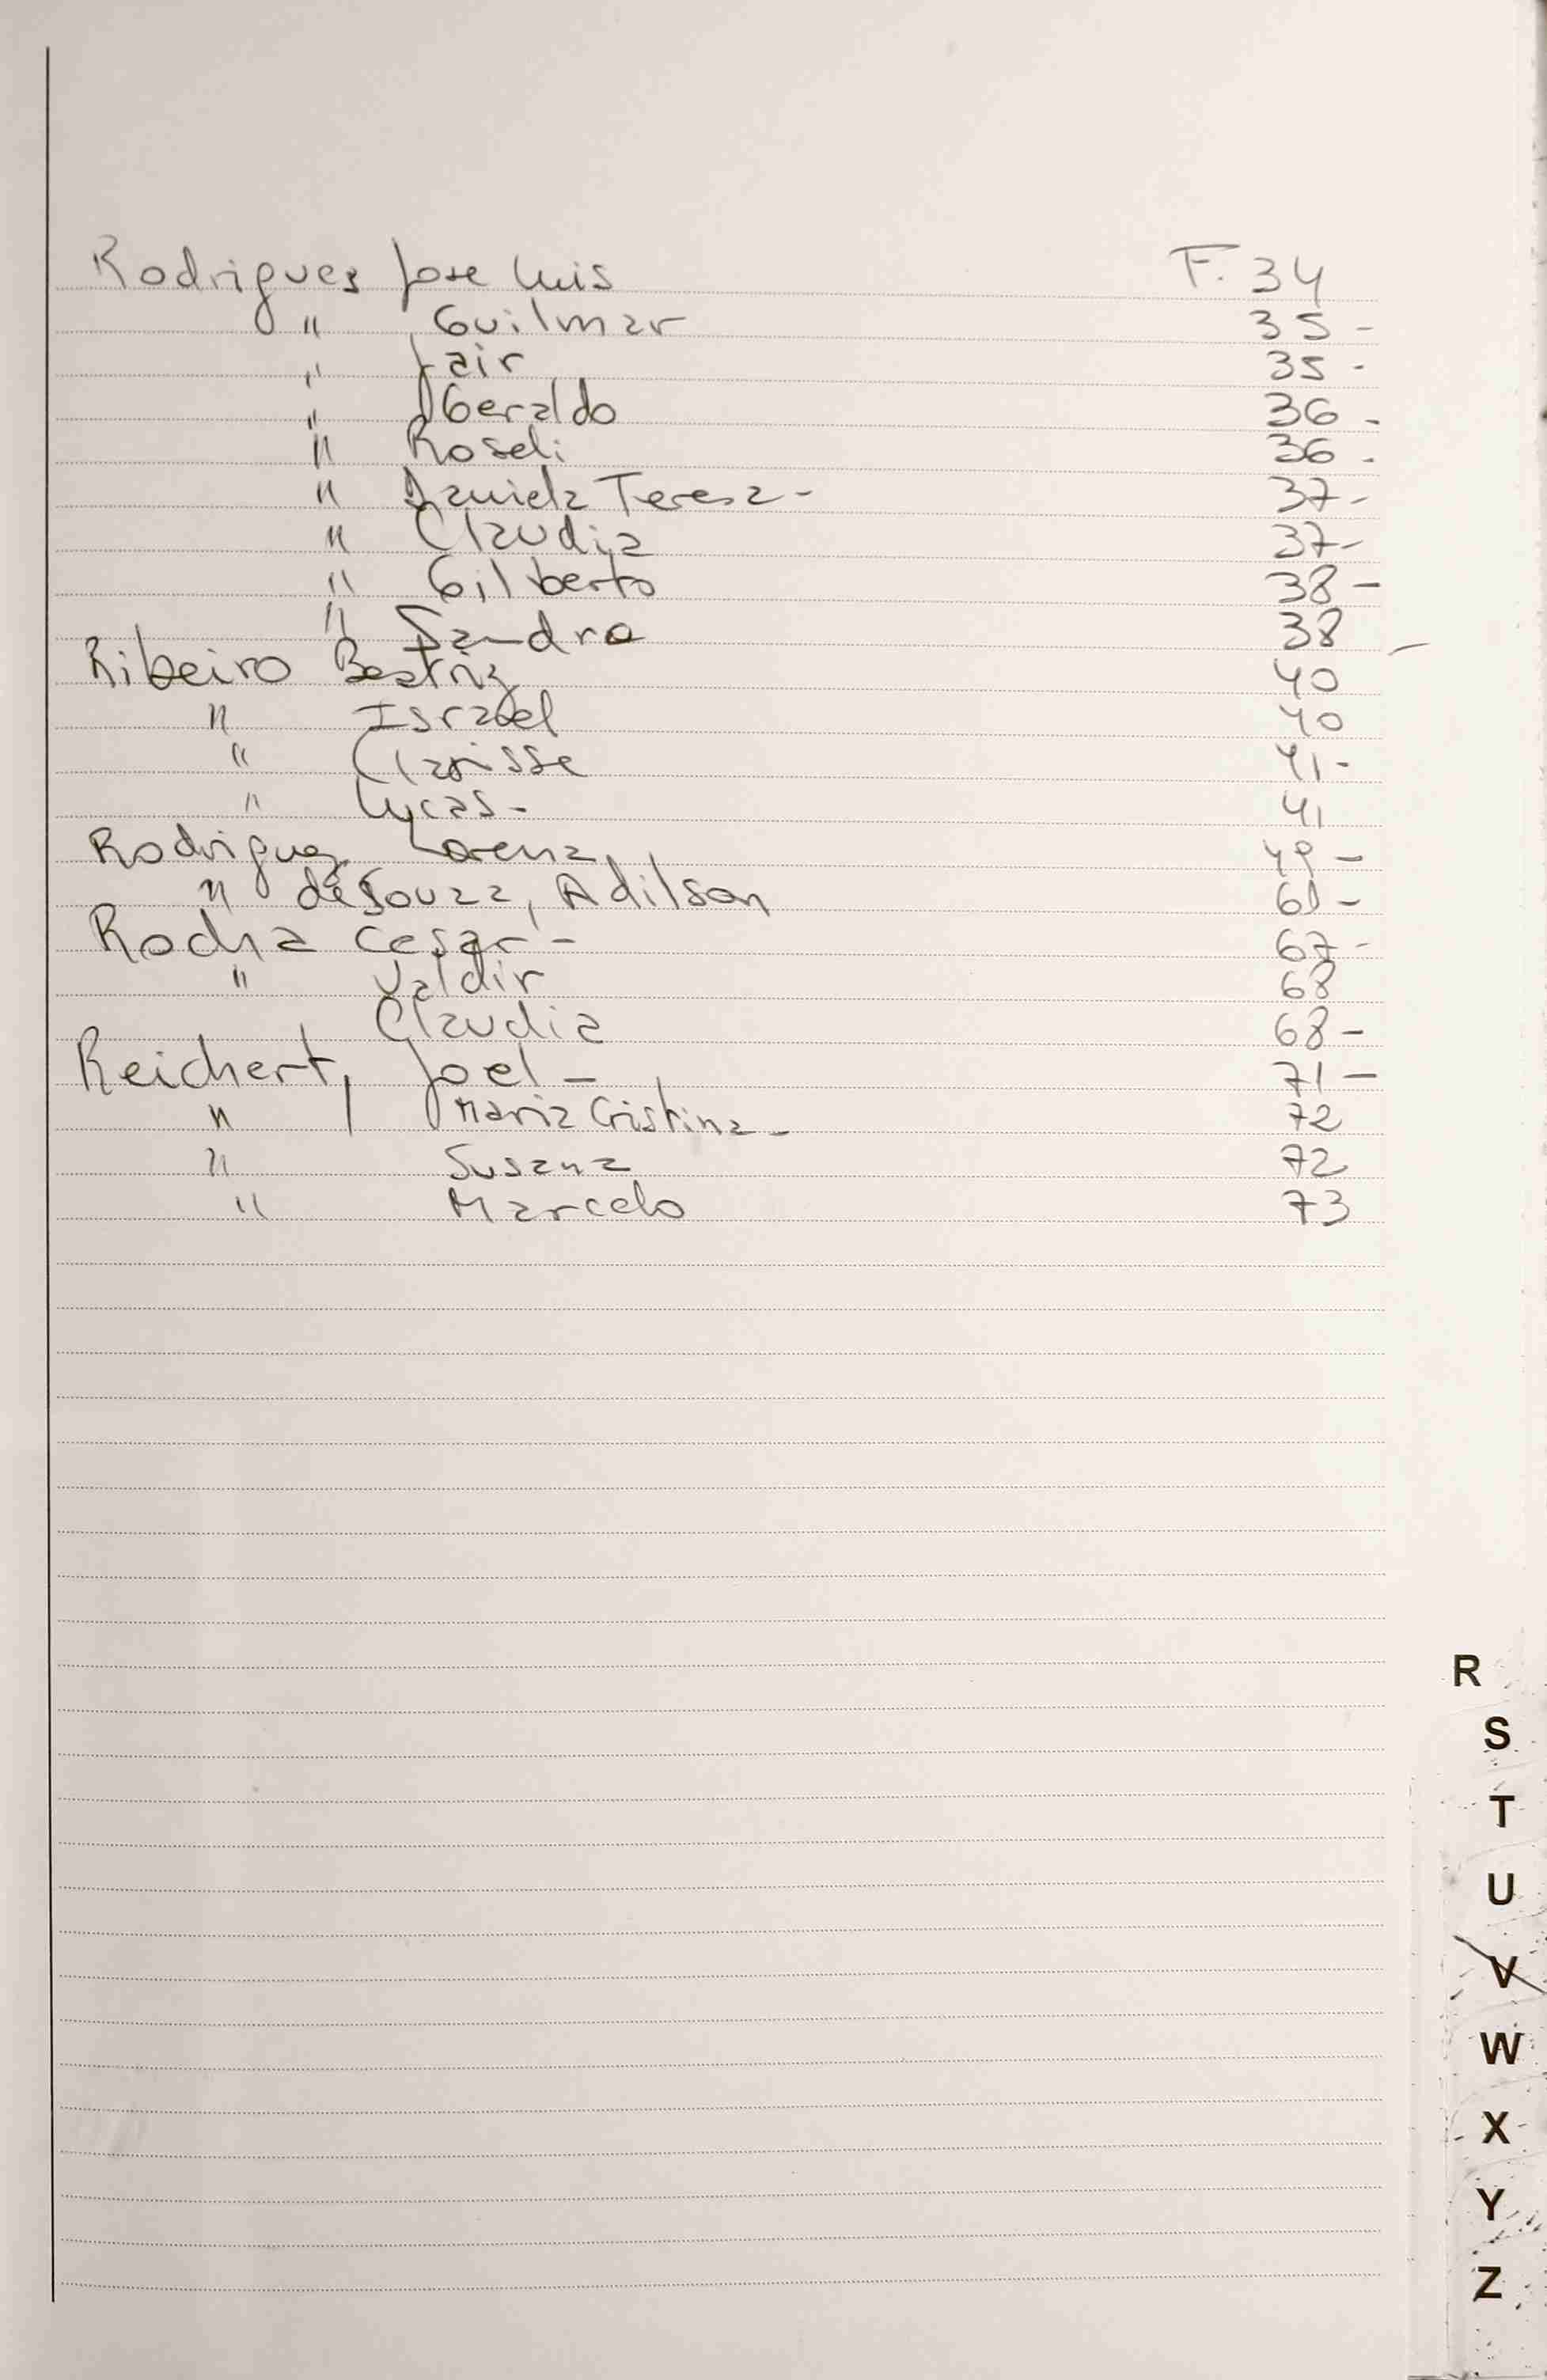 Rodrigues Jose Luis F. 34
" Guilmar 35 -
" Jair 35 -
" Geraldo 36 -
" Roseli 36 -
" Daniela Teresa - 37 -
" Claudia 37 -
" Gilberto 38 -
" Sandra 38 -
Ribeiro Beatriz 40
" Israel 40
" Clarisse 41 -
" Lucas - 41
Rodriguez Lorena 49 -
" de Souza, Adilson -
Rocha Cesar - 67 -
" Valdir 68
Claudia 68 -
Reichert, Joel - 71 -
" Maria Cristina - 72
" Susana 72
" Marcelo 73
R
S
T
U
V
W
X
Y
Z